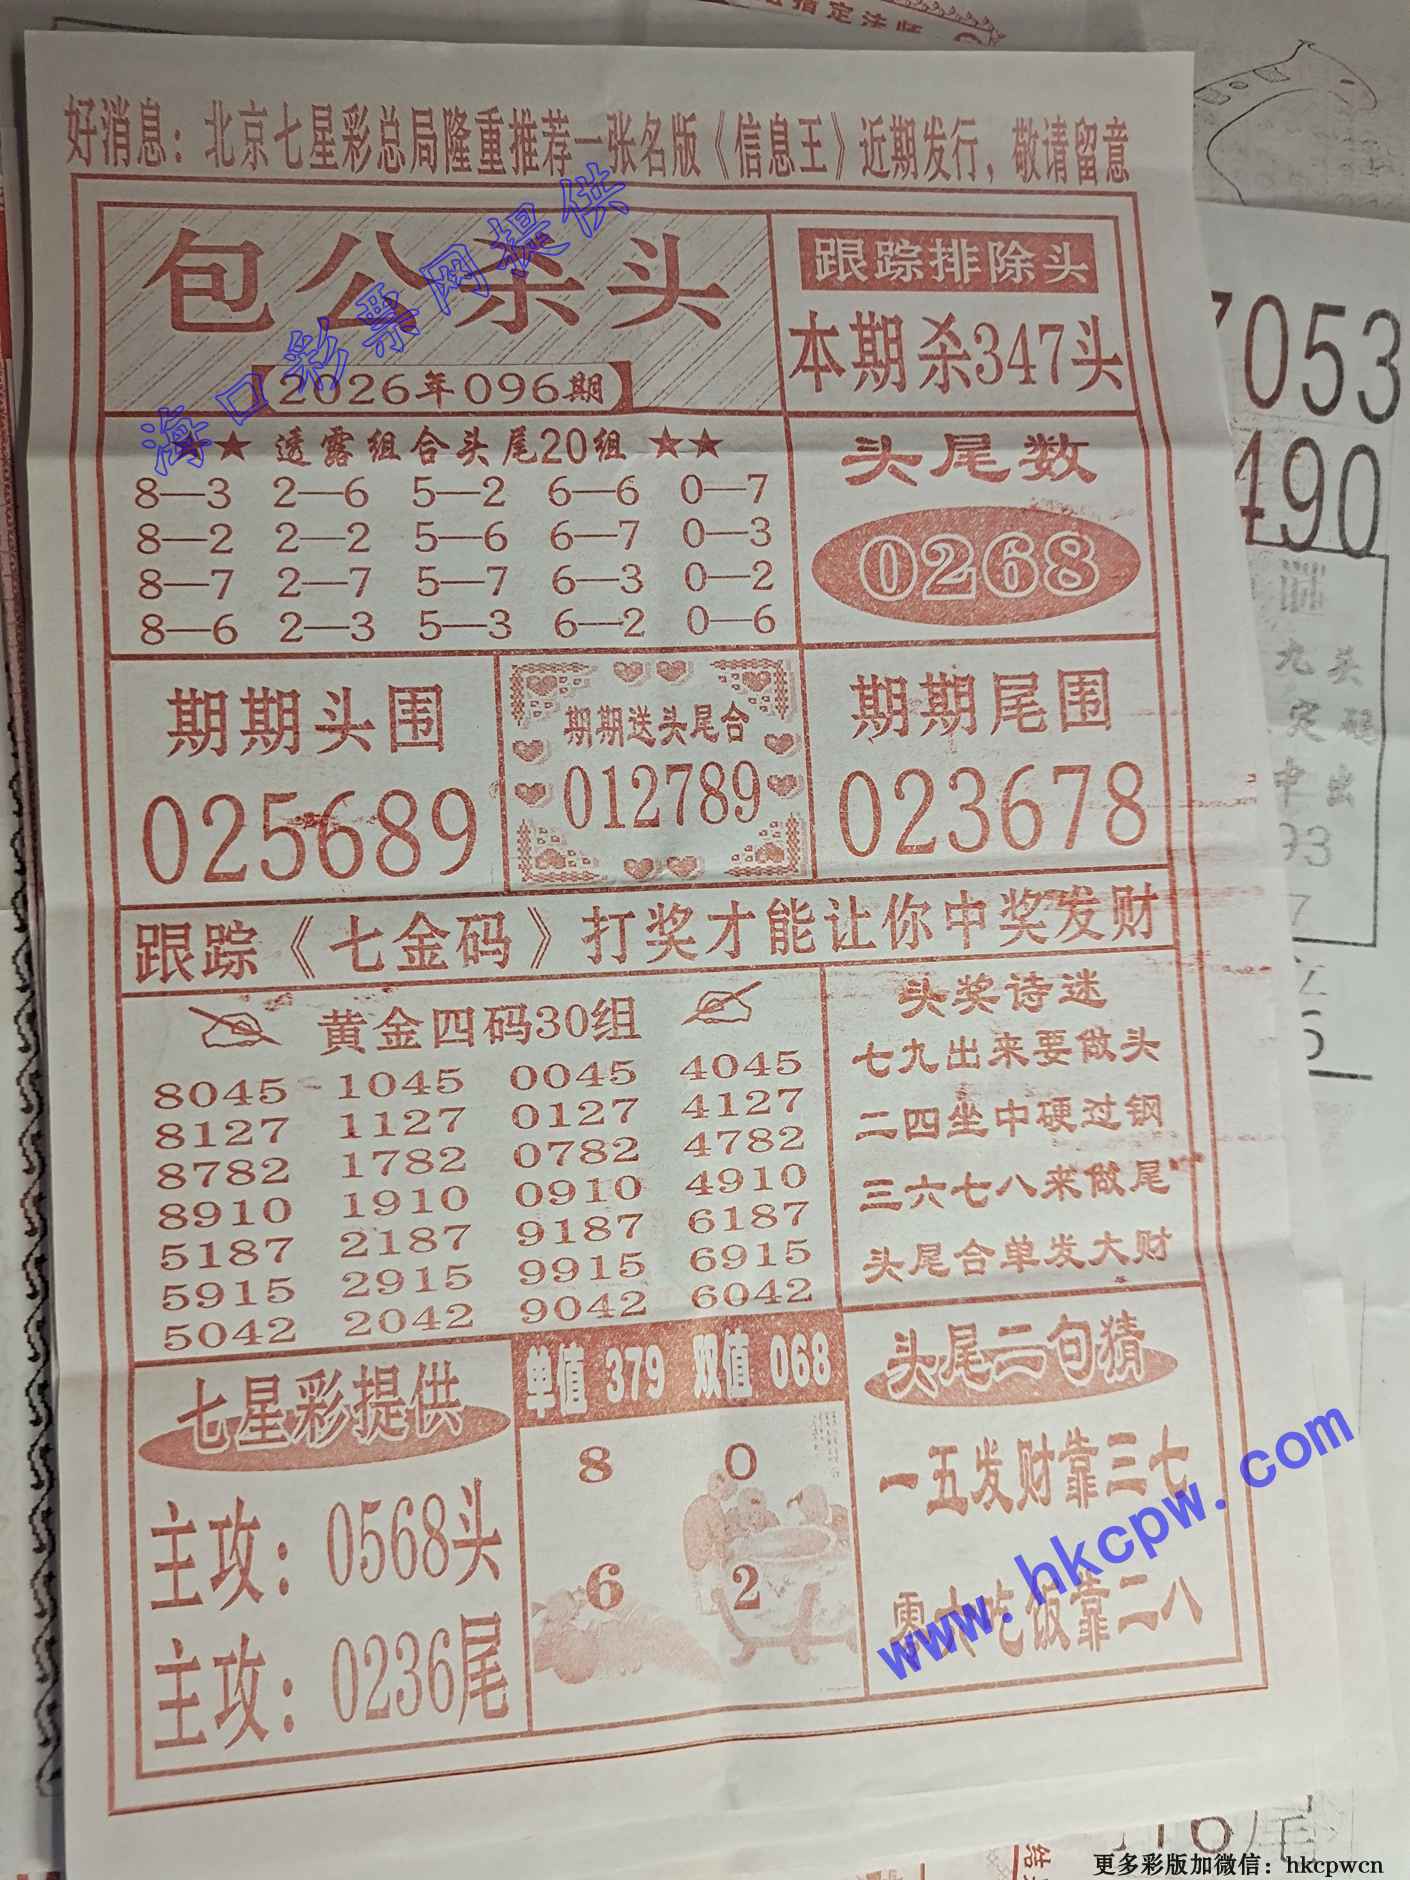 指定法师
好消息：北京七星彩总局隆重推荐一张名版《信息王》近期发行，敬请留意
包公杀头
【2026年096期】
跟踪排除头
本期杀347头
★★ 透露组合头尾20组 ★★
8—3 2—6 5—2 6—6 0—7
8—2 2—2 5—6 6—7 0—3
8—7 2—7 5—7 6—3 0—2
8—6 2—3 5—3 6—2 0—6
头尾数
0268
期期头围
025689
期期送头尾合
012789
期期尾围
023678
跟踪《七金码》打奖才能让你中奖发财
黄金四码30组
8045 1045 0045 4045
8127 1127 0127 4127
8782 1782 0782 4782
8910 1910 0910 4910
5187 2187 9187 6187
5915 2915 9915 6915
5042 2042 9042 6042
头奖诗迷
七九出来要做头
二四坐中硬过钢
三六七八来做尾
头尾合单发大财
七星彩提供
主攻：0568头
主攻：0236尾
单值 379 双值 068
8 0
6 2
头尾二句猜
一五发财靠三七
零六吃饭靠二八
053
490
九头
中出
93
7
海口彩票网提供
www.hkcpw.com
更多彩版加微信：hkcpwcn